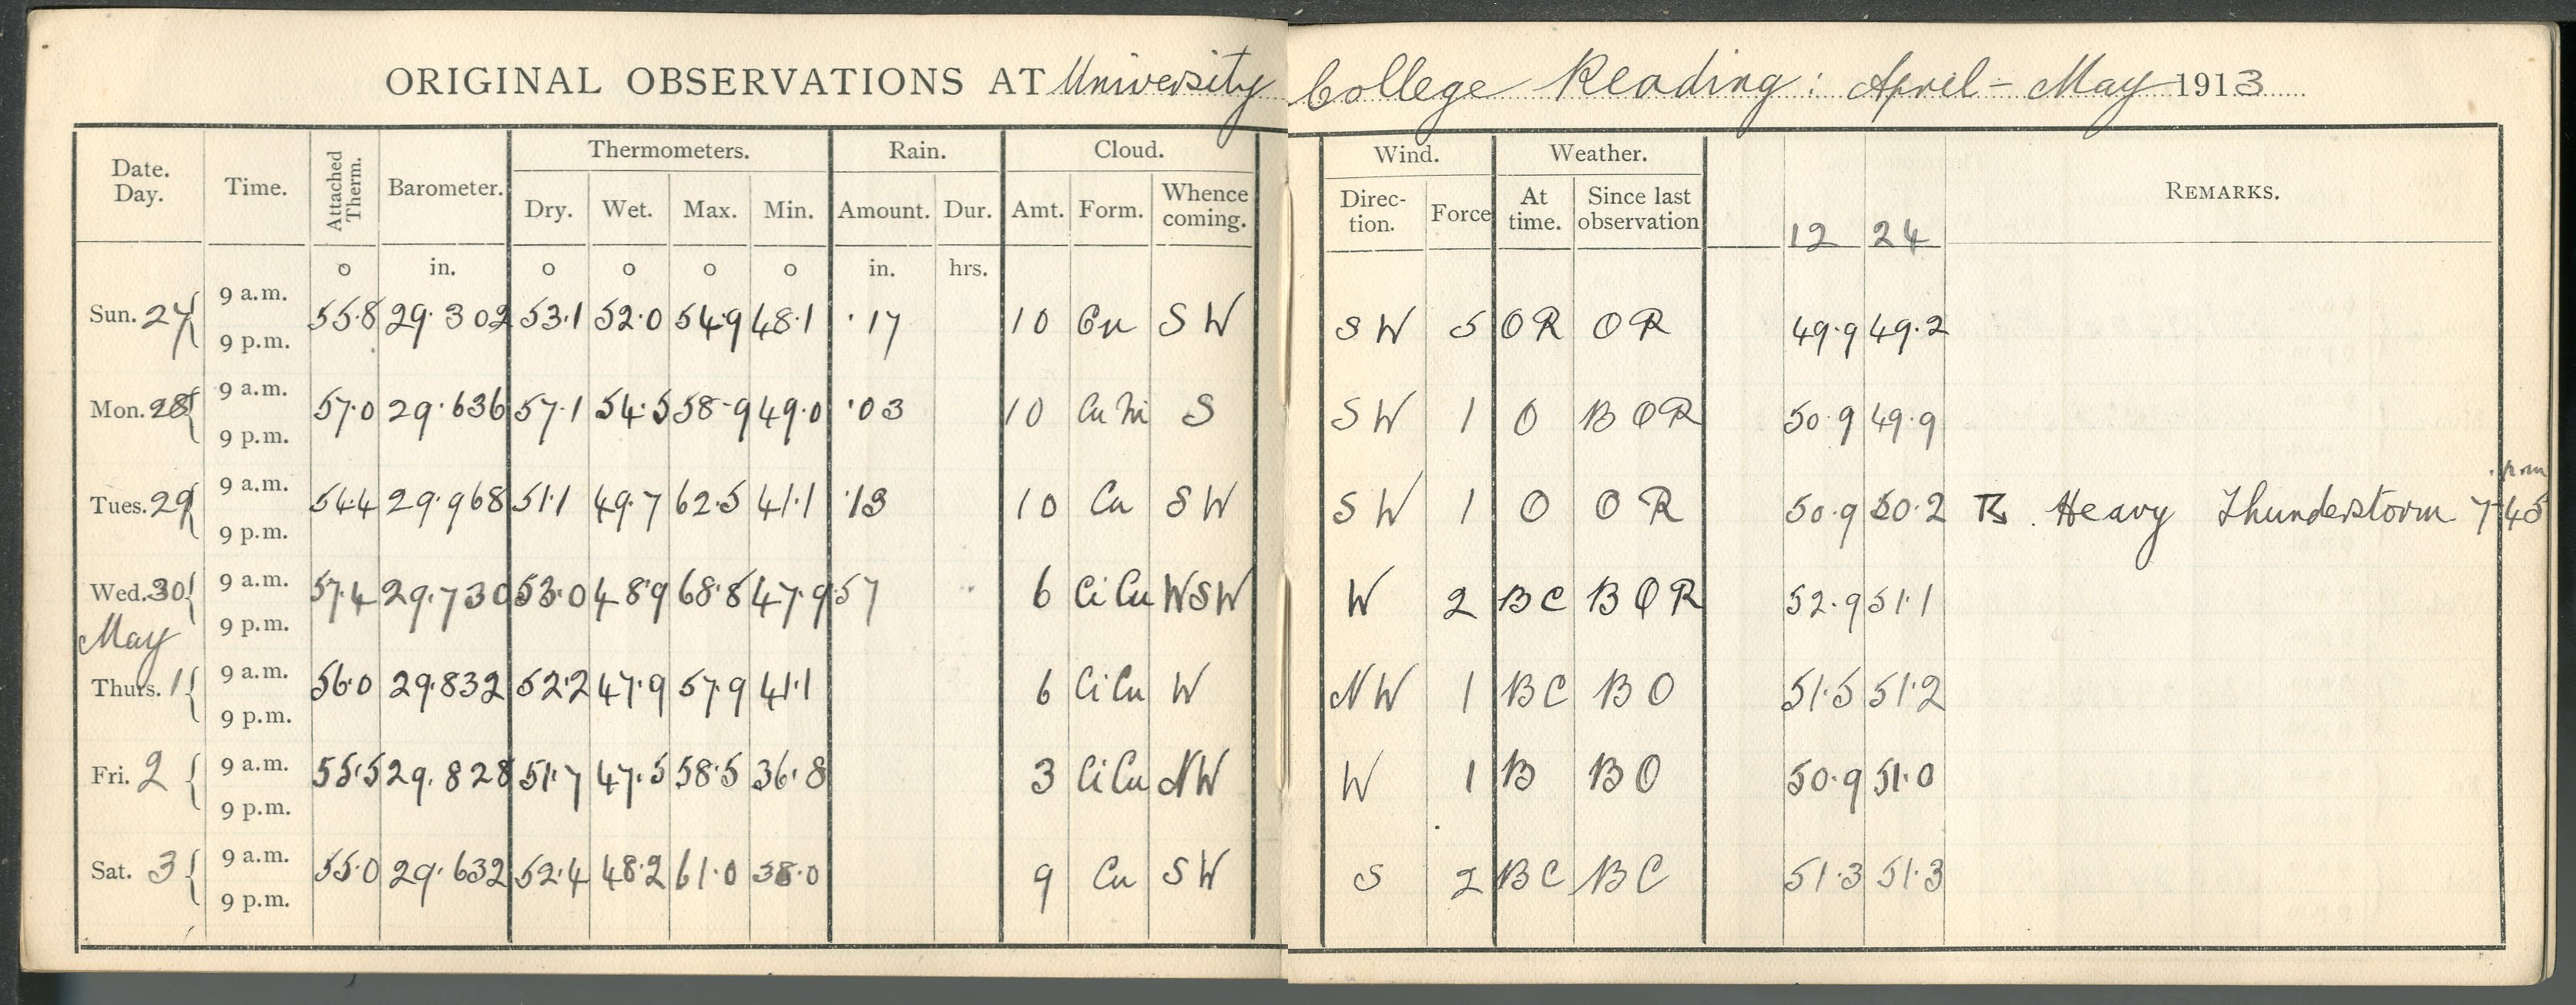 ORIGINAL OBSERVATIONS AT University College Reading: April - May 1913
Date. Day. Time. Attached Therm. Barometer. Thermometers. Rain. Cloud. Wind. Weather. REMARKS.
Dry. Wet. Max. Min. Amount. Dur. Amt. Form. Whence coming. Direc- tion. Force At time. Since last observation 12 24
o in. o o o o in. hrs.
9 a.m.
Sun. 27 55.8 29.302 53.1 52.0 54.9 48.1 .17 10 Cu S W S W 5 O R O R 49.9 49.2
9 p.m.
9 a.m.
Mon. 28 57.0 29.636 57.1 54.5 58.9 49.0 .03 10 Cu Ni S S W 1 O B O R 50.9 49.9
9 p.m.
9 a.m. p.m
Tues. 29 54.4 29.968 51.1 49.7 62.5 41.1 .13 10 Cu S W S W 1 O O R 50.9 50.2 Heavy Thunderstorm 7-45
9 p.m.
9 a.m.
Wed. 30 57.4 29.730 53.0 48.9 68.8 47.9 .57 6 Ci Cu W S W W 2 B C B O R 52.9 51.1
9 p.m.
May
9 a.m.
Thurs. 1 56.0 29.832 52.2 47.9 57.9 41.1 6 Ci Cu W N W 1 B C B O 51.5 51.2
9 p.m.
9 a.m.
Fri. 2 55.5 29.828 51.7 47.5 58.5 36.8 3 Ci Cu N W W 1 B B O 50.9 51.0
9 p.m.
9 a.m.
Sat. 3 55.0 29.632 52.4 48.2 61.0 38.0 9 Cu S W S 2 B C B C 51.3 51.3
9 p.m.